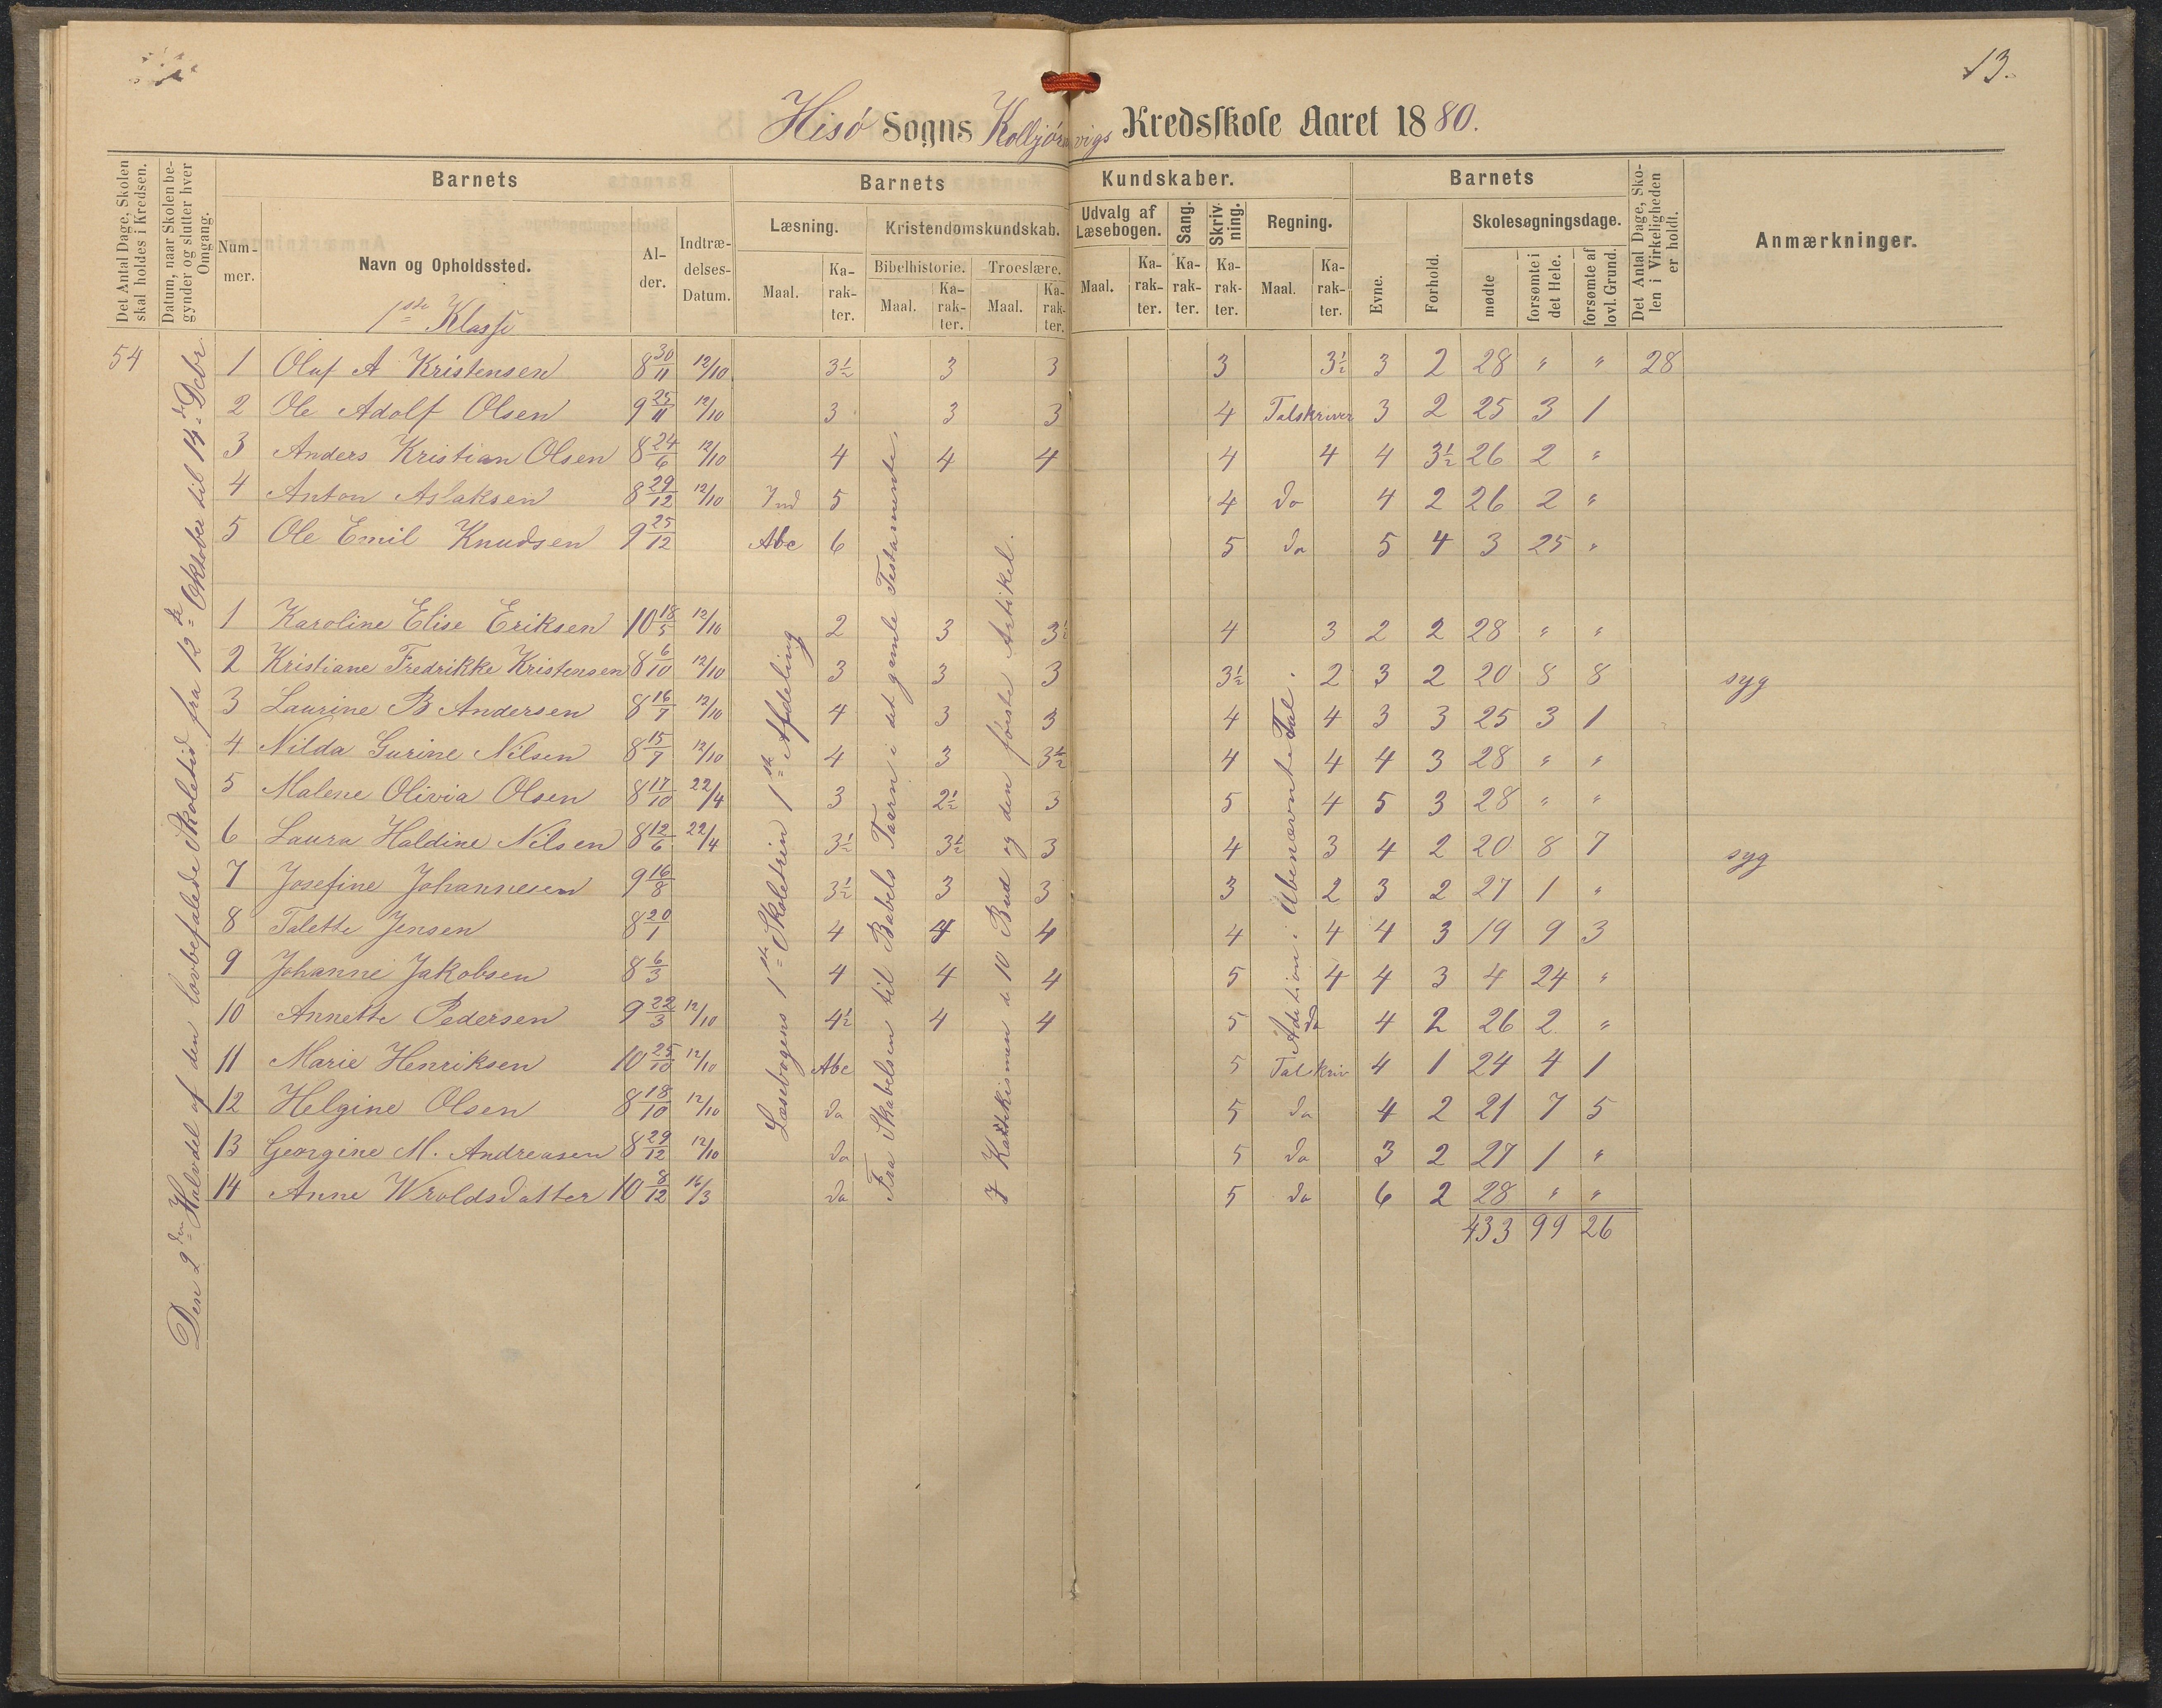 13.
Hisö Sogns Kolbjörnsvigs Kredsskole Aaret 1880.
Det Antal Dage, Skolen skal holdes i Kredsen.
Datum, naar Skolen begynder og slutter hver Omgang.
Barnets
Nummer.
Navn og Opholdssted.
Alder.
Indtrædelses-Datum.
Barnets Kundskaber.
Læsning.
Maal.
Karakter.
Kristendomskundskab.
Bibelhistorie.
Maal.
Karakter.
Troeslære.
Maal.
Karakter.
Udvalg af Læsebogen.
Maal.
Karakter.
Sang.
Karakter.
Skrivning.
Karakter.
Regning.
Maal.
Karakter.
Barnets
Evne.
Forhold.
Skolesøgningsdage.
mødte
forsømte i det Hele.
forsømte af lovl. Grund.
Det Antal Dage, Skolen i Virkeligheden er holdt.
Anmærkninger.
1ste Klasse
54
Den 2den Halvdel af den lovbefalede Skoletid fra 12te Oktober til 14de Dcbr.
Læsebogens 1ste Skoletrin 1ste Afdeling
Fra Skabelsen til Babels Taarn i det gamle Testamente.
I Katekismen de 10 Bud og den første Artikel.
Adition i Ubenævnte Tal.
1 Oluf A Kristensen 8 30/11 12/10 3½ 3 3 3 3½ 3 2 28 " " 28
2 Ole Adolf Olsen 9 25/11 12/10 3 3 3 4 Talskriver 3 2 25 3 1
3 Anders Kristian Olsen 8 24/6 12/10 4 4 4 4 4 4 3½ 26 2 "
4 Anton Aslaksen 8 29/12 12/10 Ind 5 4 do 4 2 26 2 "
5 Ole Emil Knudsen 9 25/12 Abc 6 5 do 5 4 3 25 "
1 Karoline Elise Eriksen 10 18/5 12/10 2 3 3½ 4 3 2 2 28 " "
2 Kristiane Fredrikke Kristensen 8 6/10 12/10 3 3 3 3½ 2 3 2 20 8 8 syg
3 Laurine B Andersen 8 16/7 12/10 4 3 3 4 4 3 3 25 3 1
4 Nilda Gurine Nilsen 8 15/7 12/10 4 3 3½ 4 4 4 3 28 " "
5 Malene Olivia Olsen 8 17/10 22/4 3 2½ 3 5 4 5 3 28 " "
6 Laura Haldine Nilsen 8 12/6 22/4 3½ 3½ 3 4 3 4 2 20 8 7 syg
7 Josefine Johannesen 9 16/8 3½ 3 3 3 2 3 2 27 1 "
8 Talette Jensen 8 20/1 4 4 4 4 4 4 3 19 9 3
9 Johanne Jakobsen 8 6/3 4 4 4 5 4 4 3 4 24 "
10 Annette Pedersen 9 22/3 12/10 4½ 4 4 5 do 4 2 26 2 "
11 Marie Henriksen 10 25/10 12/10 Abc 5 Talskriv 4 1 24 4 1
12 Helgine Olsen 8 18/10 12/10 do 5 do 4 2 21 7 5
13 Georgine M. Andreasen 8 29/12 12/10 do 5 do 3 2 27 1 "
14 Anne Wroldsdatter 10 8/12 16/3 do 5 do 6 2 28 " "
433 99 26